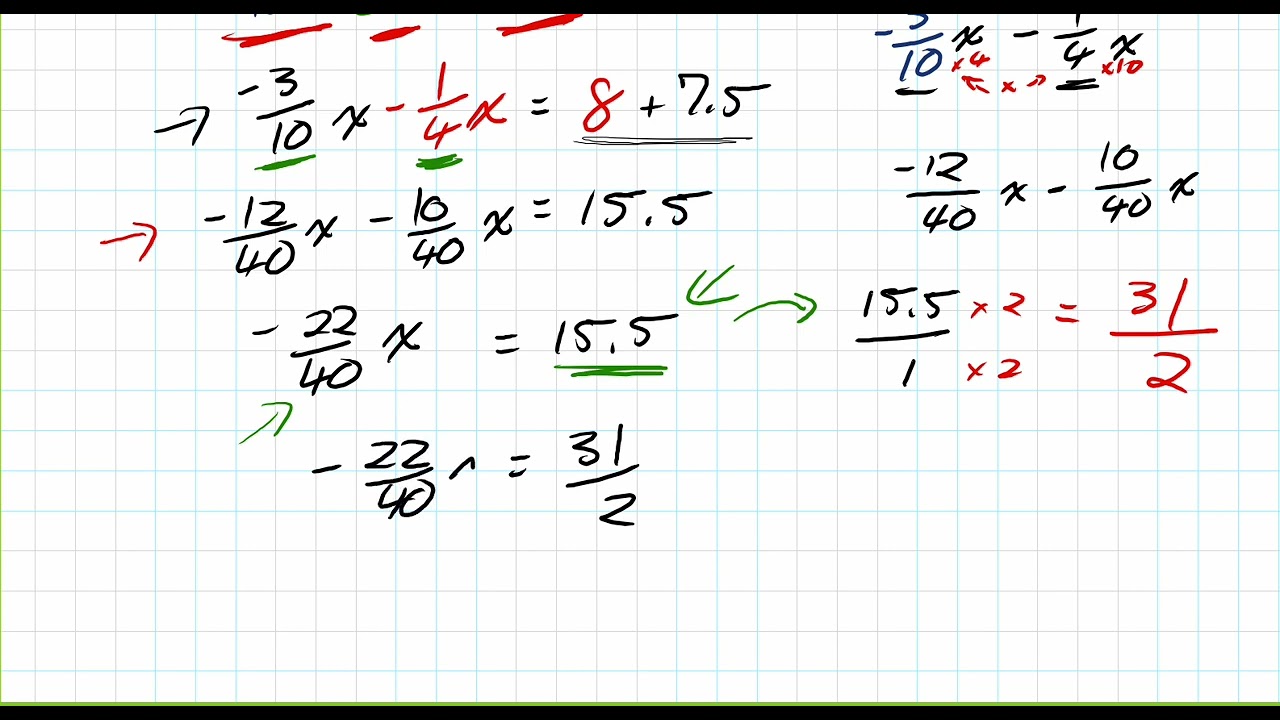 → -3/10 x - 1/4 x = 8 + 7.5
→ -12/40 x - 10/40 x = 15.5
- 22/40 x = 15.5
- 22/40 = 31/2
-3/10 x - 1/4 x
×4 ← × → ×10
-12/40 x - 10/40 x
15.5/1 ×2/×2 = 31/2